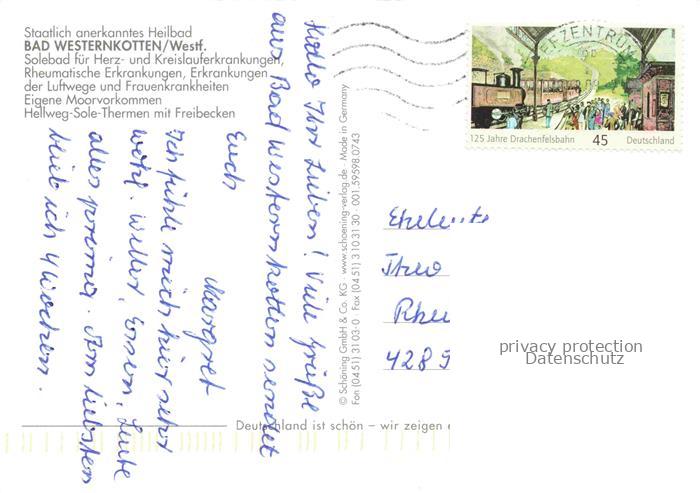 Staatlich anerkanntes Heilbad
BAD WESTERNKOTTEN/Westf.
Solebad für Herz- und Kreislauferkrankungen,
Rheumatische Erkrankungen, Erkrankungen
der Luftwege und Frauenkrankheiten
Eigene Moorvorkommen
Hellweg-Sole-Thermen mit Freibecken
Hallo Ihr Lieben! Viele Grüße
aus Bad Westernkotten sendet
Euch
Margret
Ich fühle mich hier sehr
wohl. Wetter, Essen, Leute
alles prima. Am liebsten
blieb ich 4 Wochen.
© Schöning GmbH & Co. KG · www.schoening-verlag.de · Made in Germany
Fon (0451) 31 03-0 · Fax (04 51) 3 10 31 30 · 001.59598.0743
BRIEFZENTRUM
125 Jahre Drachenfelsbahn 45 Deutschland
Eheleute
Theo
Rhe
4289
privacy protection
Datenschutz
Deutschland ist schön – wir zeigen e